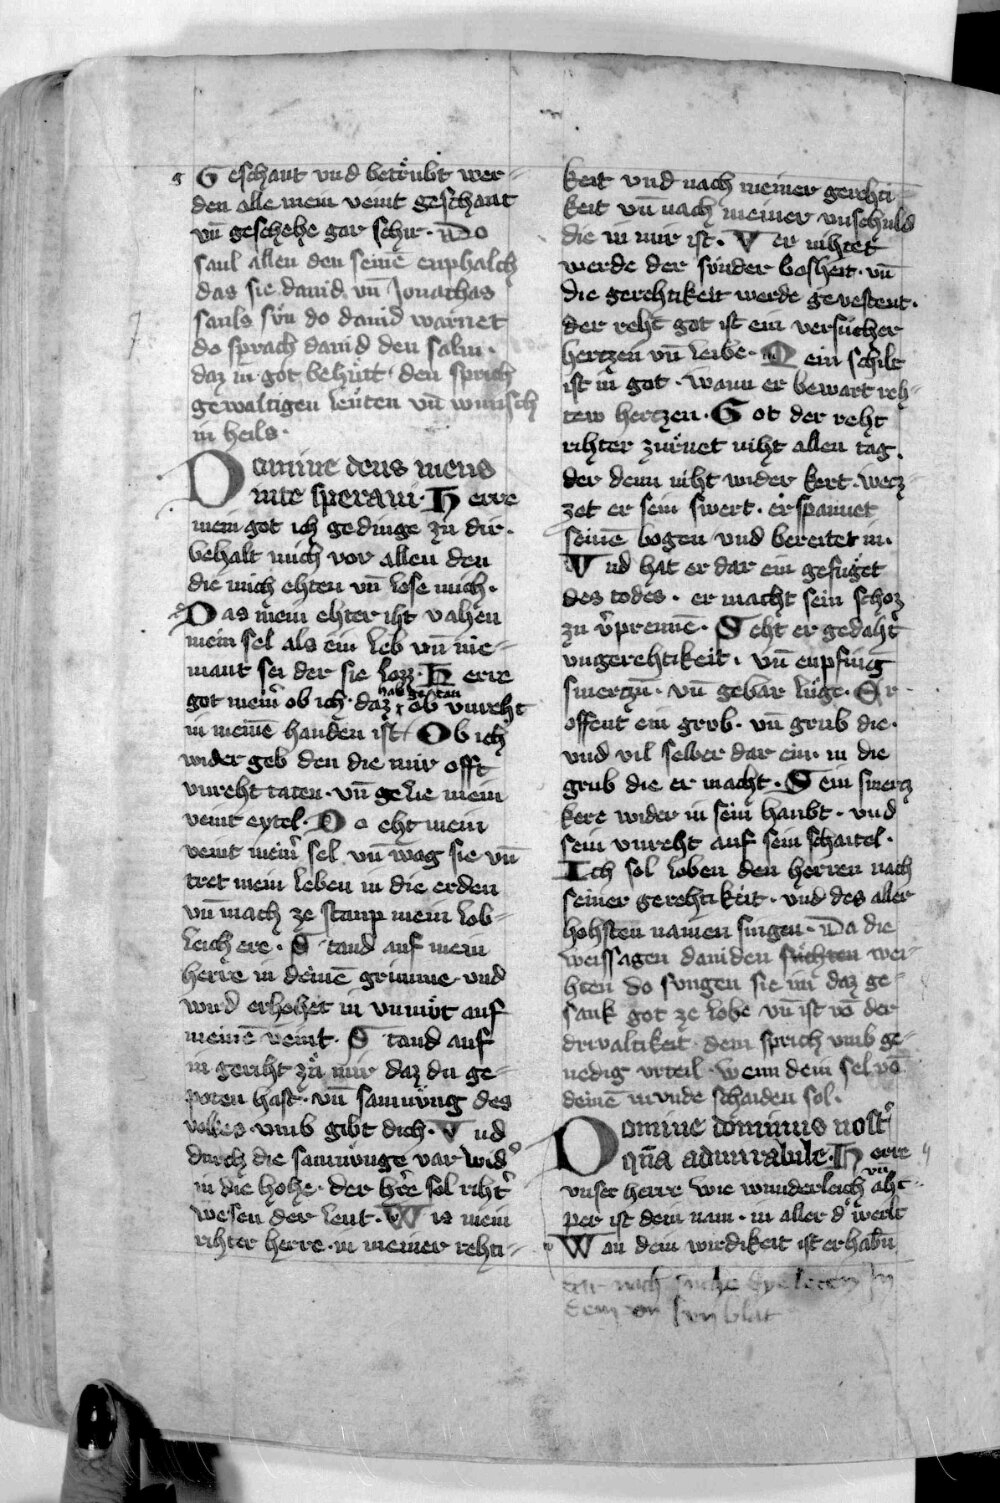 Geschant vnd betrubt wer-
den alle mein veint geschant
vn̄ geschehe gar schir. Do
saul allen den seinē enphalch
das sie dauid vn̄ Jonathas
sauls sun do dauid warnet
do sprach dauid den salm.
daz in got behut. den sprich
gewaltigen leuten vn̄ wunsch
in heils.
Domine deus meus
inte speraui. Herre
mein got ich gedinge zu dir.
behalt mich vor allen den
die mich ehten vn̄ lose mich.
Das mein ehter iht vahen
mein sel als ein leb vn̄ nie-
mant sei der sie lozz. Herre
got mein̾ ob ich daz hab getan ob vnreht
in meinē handen ist. Ob ich
wider geb den die mir offt
vnreht taten. vn̄ gelie mein
veint eytel. So eht mein
veint mein̾ sel vn̄ vvag sie vn̄
tret mein leben in die erden
vn̄ mach ze staup mein lob-
leich ere. Stand auf mein
herre in deinē grimme vnd
wird erhohet in vnmut auf
meinē veint. Stand auf
in geriht zu mir daz du ge-
poten hast. vn̄ samnung des
volkes vmb gibt dich. Vnd
durch die samnunge var wid̾
in die hohe. der h̾re sol riht̾
wesen der leut. Wis mein
rihter herre. in meiner rehti-
keit vnd nach meiner gerehti-
keit vn̄ nach meiner vnschuld
die in mir ist. Vernihtet
werde der sunder bosheit. vn̄
die gerehtikeit werde gevestent.
der reht got ist ein versucher
hertzen vn̄ leibe. Mein schilt
ist in got. wann er bewart reh-
tew hertzen. Got der reht
rihter zurnet niht allen tag.
der denn niht wider kert. wetz-
zet er sein swert. er spannet
seinē bogen vnd bereitet in.
Vnd hat er dar ein gefuget
des todes. er macht sein schoz
zu v̾prennē. Seht er gedaht
vngerehtikeit. vn̄ enpfing
smertzn̄. vn̄ gebar luge. Er
offent ein grub. vn̄ grub die.
vnd vil selber dar ein. in die
grub die er macht. Sein smertz
kere wider in sein haubt. vnd
sein vnreht auf sein schaitel.
Ich sol loben den herren nach
seiner gerehtikeit. vnd des aller
hohsten namen singen. Da die
weissagen dauiden wei-
hten do sungen sie im daz ge-
sank got ze lobe vn̄ ist vō der
drivaltikeit. dem sprich vmb ge-
nedig vrteil. wenn dein sel vō
deinē munde schaiden sol.
Domine dominus nost̾
qm̄ admirabile. Herre
vnser herre wie wunderleich vn̄ aht-
per ist dein nam. in aller d̾ werlt
Wan dein wirdikeit ist erhabn̄
nach
dem blat